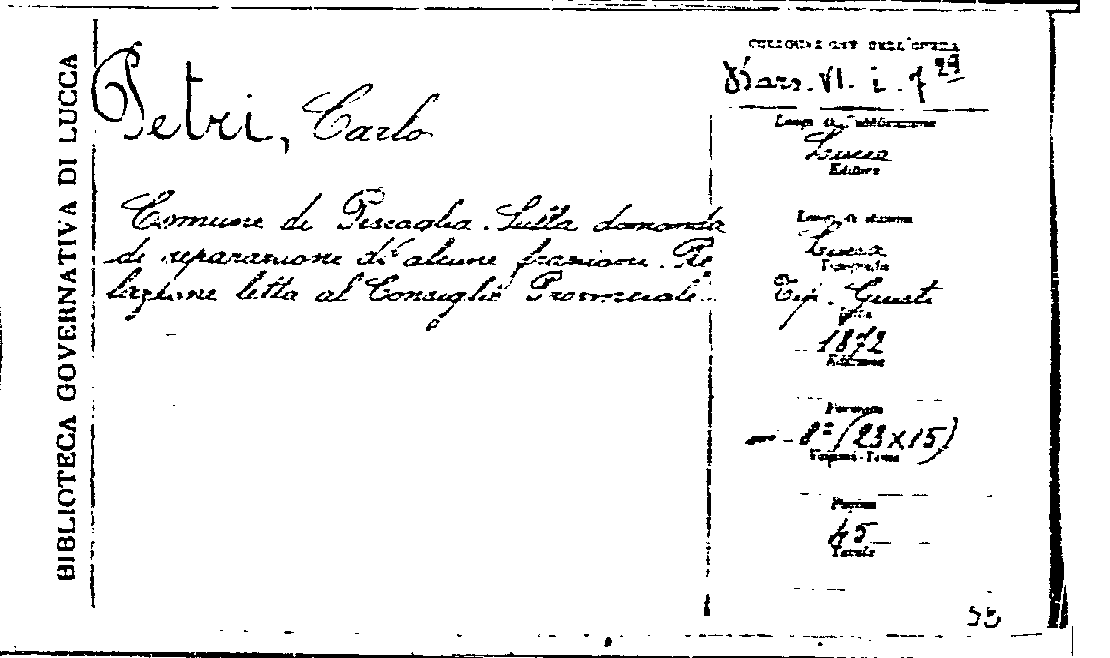 BIBLIOTECA GOVERNATIVA DI LUCCA
Petri, Carlo
Comune di Pescaglia. Sulla domanda
di separazione di alcune frazioni. Re
lazione letta al Consiglio Provinciale.
COLLOCAZIONE DELL'OPERA
Bars. VI. i. 7 29
Luogo di Pubblicazione
Lucca
Editore
Luogo di stampa
Lucca
Tipografia
Tip. Giusti
Data
1872
Edizione
Formato
8º (23x15)
Volumi-Tomi
Pagine
45
Tavole